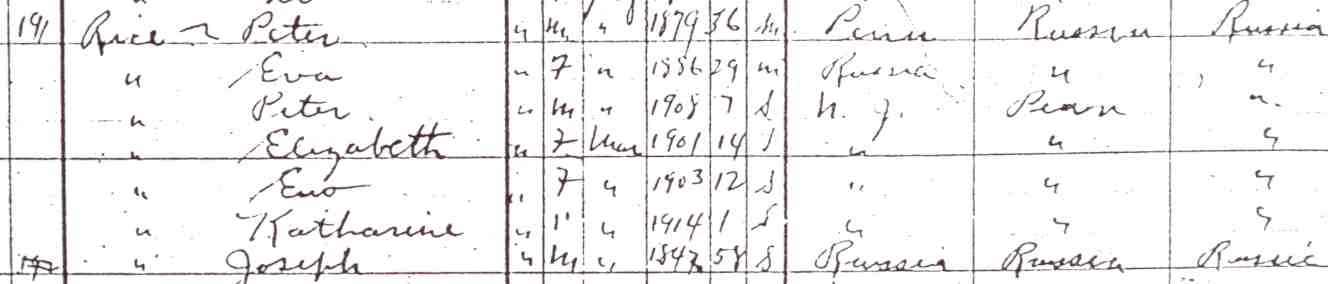 191 Rice Peter " M " 1879 36 M Penn Russia Russia
" Eva " F " 1886 29 M Russia " "
" Peter " M " 1908 7 S N. J. Penn "
" Elizabeth " F Mar 1901 14 S " " "
" Eva " F " 1903 12 S " " "
" Katharine " F " 1914 1 S " " "
" Joseph " M " 1847 58 S Russia Russia Russia